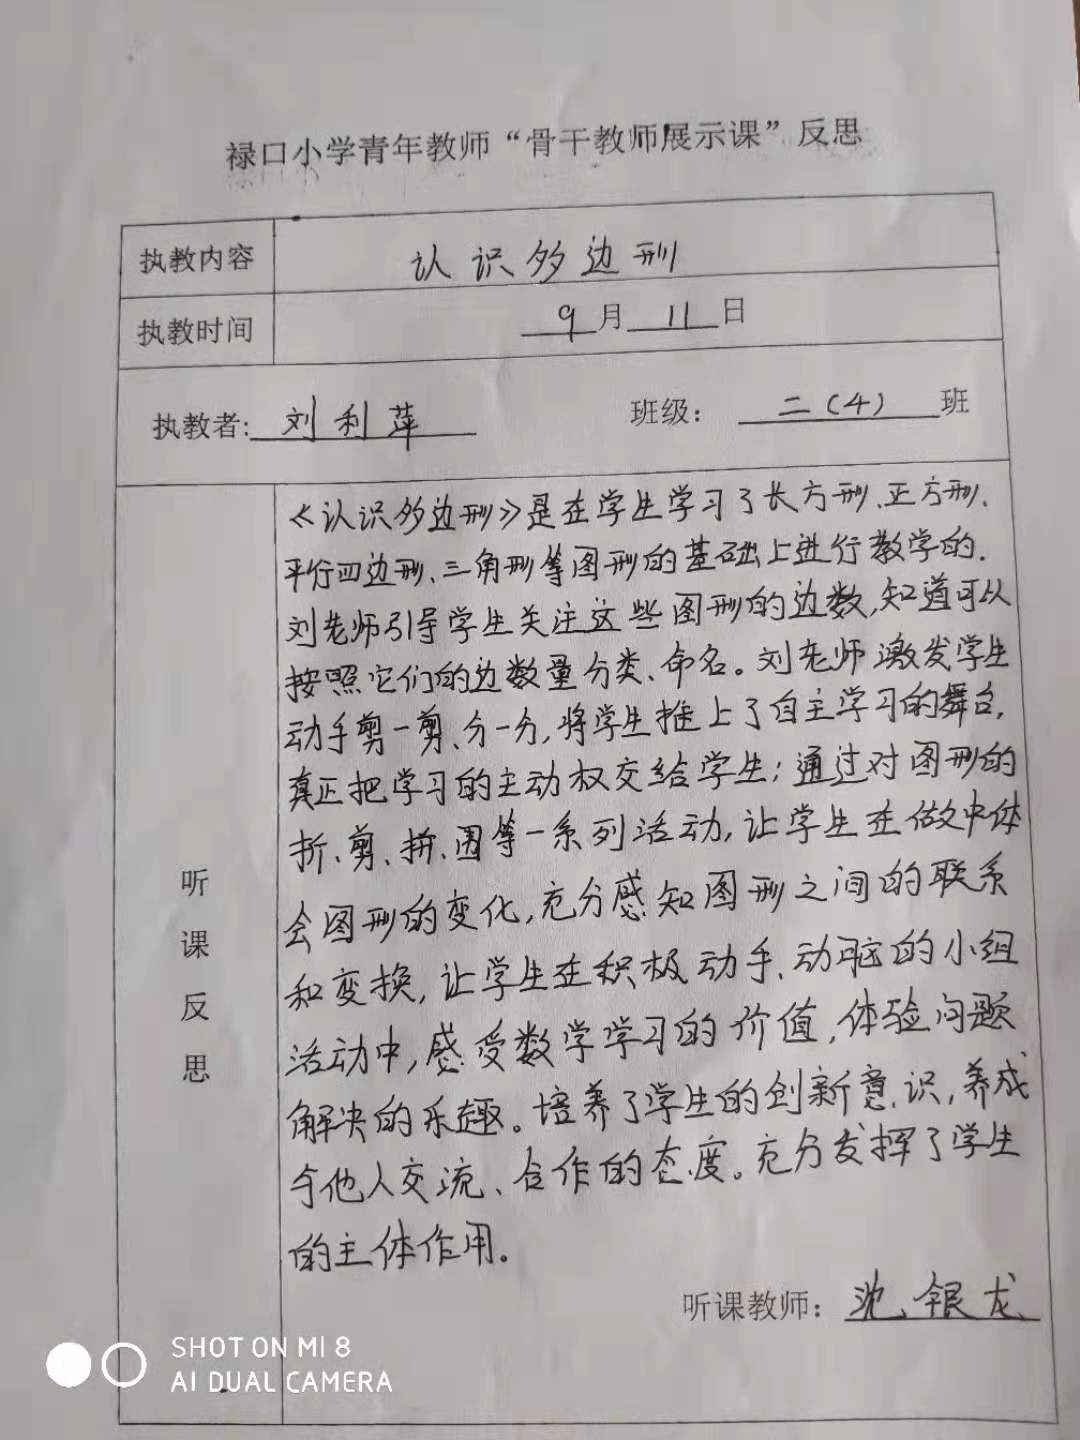 禄口小学青年教师“骨干教师展示课”反思
执教内容 认识多边形
执教时间 9月11日
执教者:刘利萍 班级：二（4）班
《认识多边形》是在学生学习了长方形、正方形、
平行四边形、三角形等图形的基础上进行教学的.
刘老师引导学生关注这些图形的边数,知道可以
按照它们的边数量分类、命名。刘老师激发学生
动手剪一剪、分一分,将学生推上了自主学习的舞台,
真正把学习的主动权交给学生;通过对图形的
折、剪、拼、围等一系列活动,让学生在做中体
会图形的变化,充分感知图形之间的联系
和变换,让学生在积极动手、动脑的小组
活动中,感受数学学习的价值,体验问题
解决的乐趣。培养了学生的创新意识,养成
与他人交流、合作的态度。充分发挥了学生
的主体作用。
听课反思
听课教师：沈银龙
SHOT ON MI 8
AI DUAL CAMERA